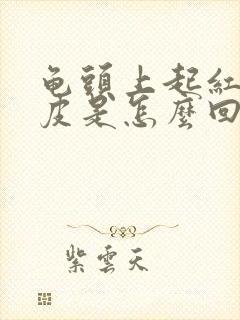 龟頭上起紅
皮是怎麼回
紫雲天